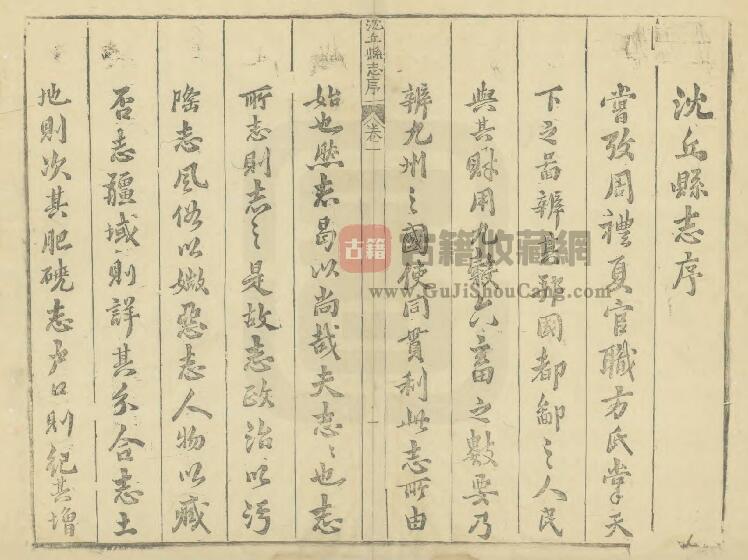 沈丘縣志序
嘗攷周禮夏官職方氏掌天
下之啚辨其邦國都鄙之人民
與其財用九穀六畜之數要乃
辨九州之國使同貫利此志所由
沈丘縣志序
卷一
一
始也然志曷以尚哉夫志志也志
所志則志之是故志政治以汚
隆志風俗以媺惡志人物以臧
否志疆域則詳其分合志土
地則次其肥磽志户口則紀其增
古籍
古籍收藏網
www.GuJiShouCang.com